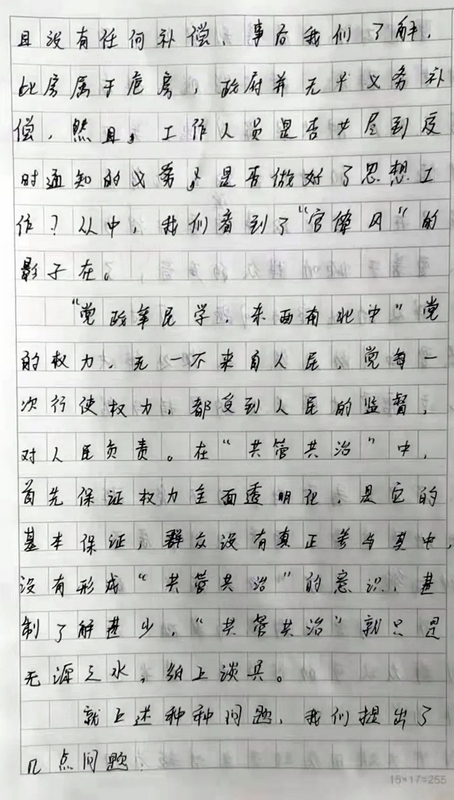 且没有任何补偿，事后我们了解，
此房属于危房，政府并无义务补
偿，然且，工作人员是否尽到及
时通知的义务，是否做好了思想工
作？从中，我们看到了“官僚风”的
影子在。
“党政军民学，东西南北中”党
的权力，无一不来自人民，党每一
次行使权力，都受到人民的监督，
对人民负责。在“共管共治”中，
首先保证权力全面透明化，是它的
基本保证，群众没有真正参与其中，
没有形成“共管共治”的意识，
制了解甚少，“共管共治”就只是
无源之水，纸上谈兵。
就上述种种问题，我们提出了
几点问题：
15×17=255